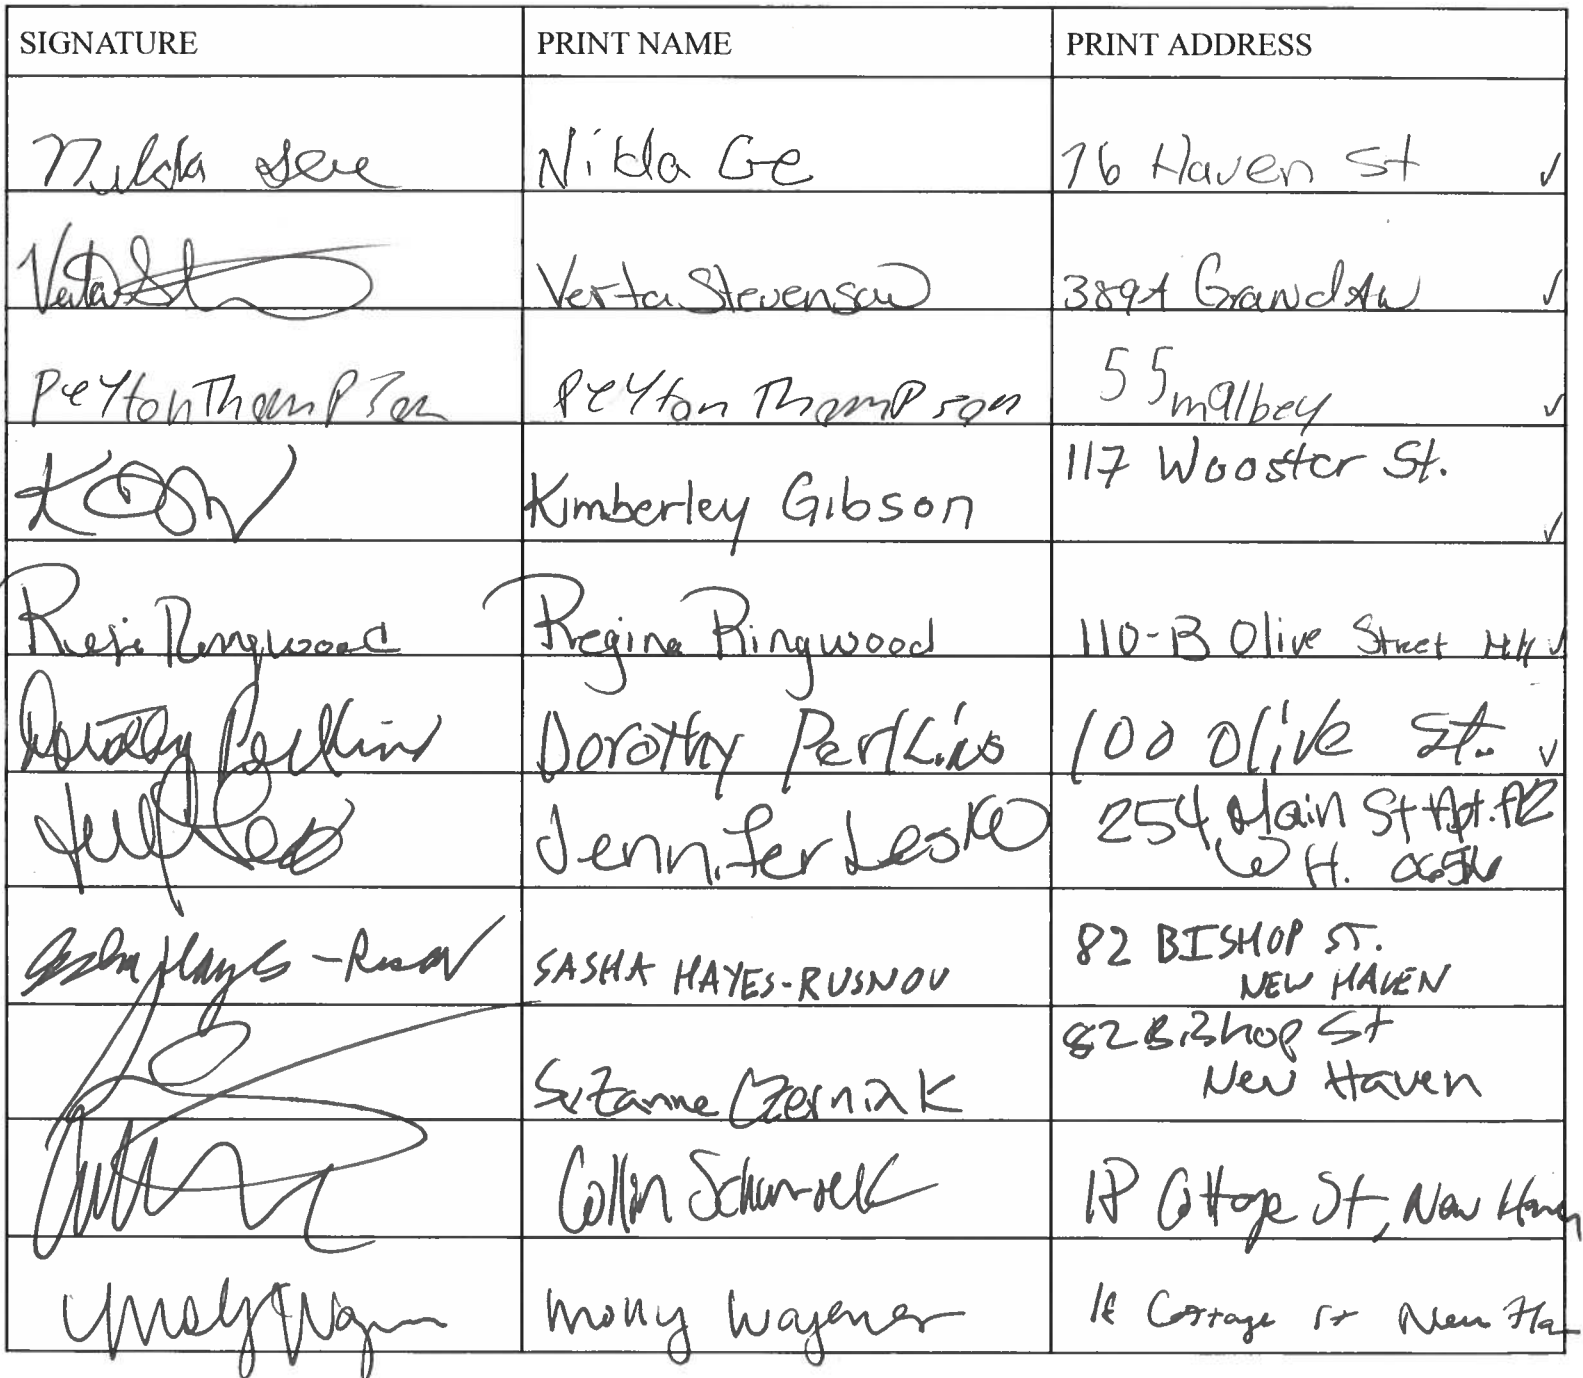 SIGNATURE PRINT NAME PRINT ADDRESS
Nilda Ge 76 Haven St ✓
Verta Stevenson 389A Grand Av ✓
Peyton Thompson Peyton Thompson 55 malbey ✓
Kimberley Gibson 117 Wooster St. ✓
Ringwood Regina Ringwood 110-B Olive Street ✓
Dorothy Perkins Dorothy Perkins 100 Olive St. ✓
Jennifer Lesko 254 Main St Apt.
W H.
Hayes- SASHA HAYES-RUSNOV 82 BISHOP ST.
NEW HAVEN
Suzanne Czerniak 82 Bishop St
New Haven
Collin 18 Cottage St, New Haven
Molly Wagener 18 Cottage St New